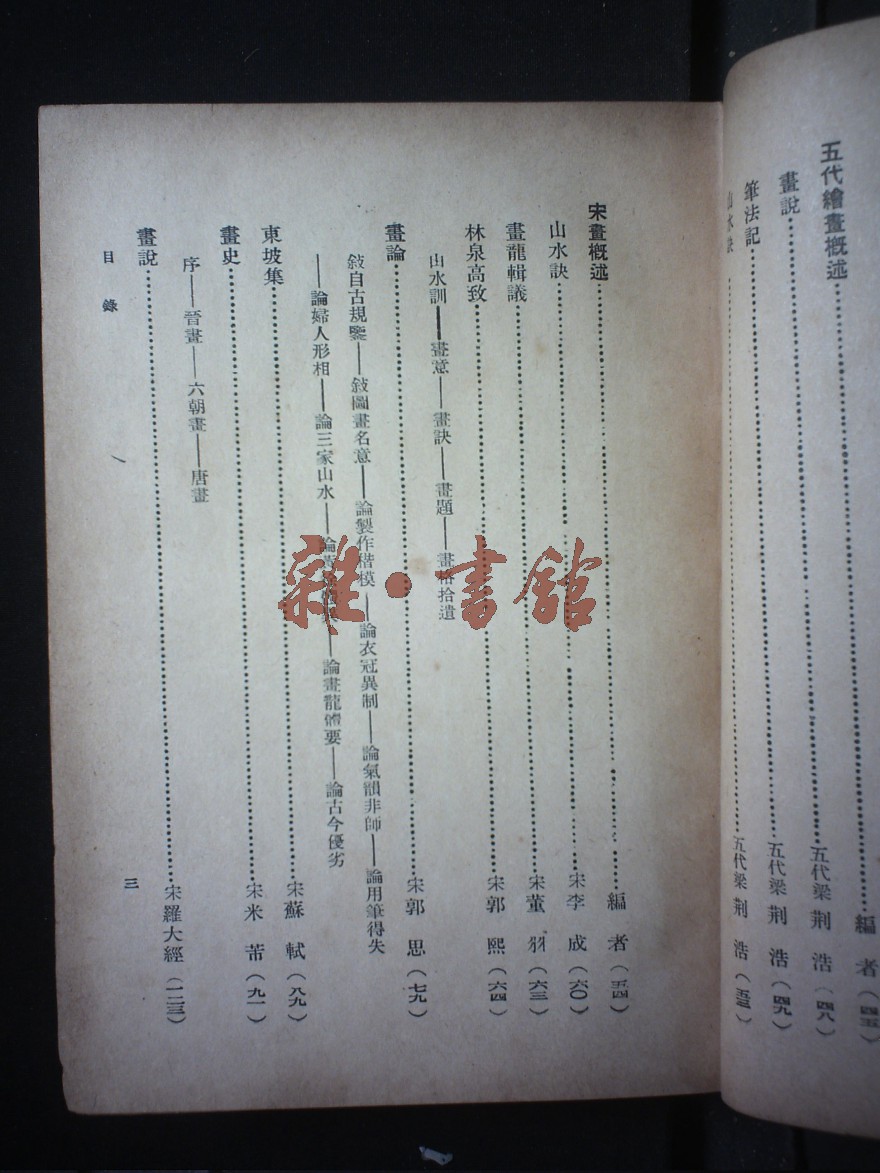 五代繪畫概述……編者（四五）
畫說……五代梁荊浩（四八）
筆法記……五代梁荊浩（四九）
山水訣……五代梁荊浩（五三）
宋畫概述……編者（五四）
山水訣……宋李成（六〇）
畫龍輯議……宋董羽（六三）
林泉高致……宋郭熙（六四）
山水訓——畫意——畫訣——畫題——畫格拾遺
畫論……宋郭思（七九）
敍自古規鑒——敍圖畫名意——論製作楷模——論衣冠異制——論氣韻非師——論用筆得失
——論婦人形相——論三家山水——論黃——論畫龍體要——論古今優劣
東坡集……宋蘇軾（八九）
畫史……宋米芾（九一）
序——晉畫——六朝畫——唐畫
畫說……宋羅大經（一二三）
目錄
三
雜·書館